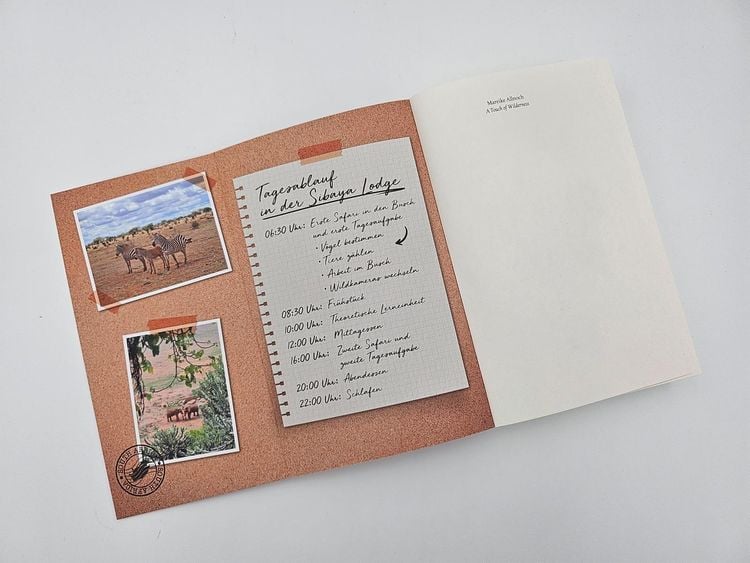 Mareike Allnoch
A Touch of Wilderness
Tagesablauf
in der Sibaya Lodge
06:30 Uhr: Erste Safari in den Busch
und erste Tagesaufgabe
• Vögel bestimmen
• Tiere zählen
• Arbeit im Busch
• Wildkameras wechseln
08:30 Uhr: Frühstück
10:00 Uhr: Theoretische Lerneinheit
12:00 Uhr: Mittagessen
16:00 Uhr: Zweite Safari und
zweite Tagesaufgabe
20:00 Uhr: Abendessen
22:00 Uhr: Schlafen
SOUTH AFRICA